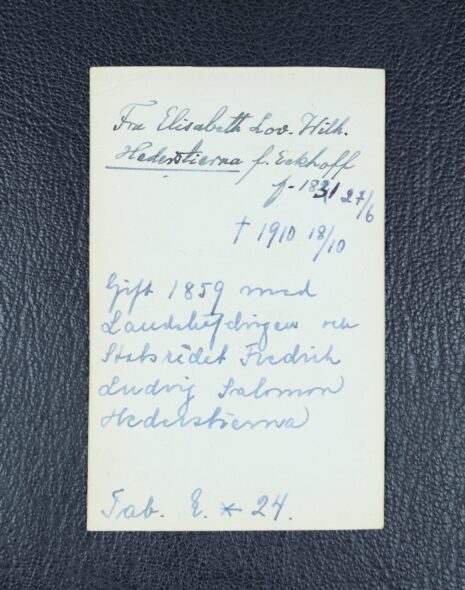 Fru Elisabeth Lov. Wilh.
Hederstierna f. Eckhoff
f. 1831 27/6
† 1910 18/10
Gift 1859 med
Landshöfdingen och
Statsrådet Fredrik
Ludvig Salomon
Hederstierna
Tab. E. * 24.